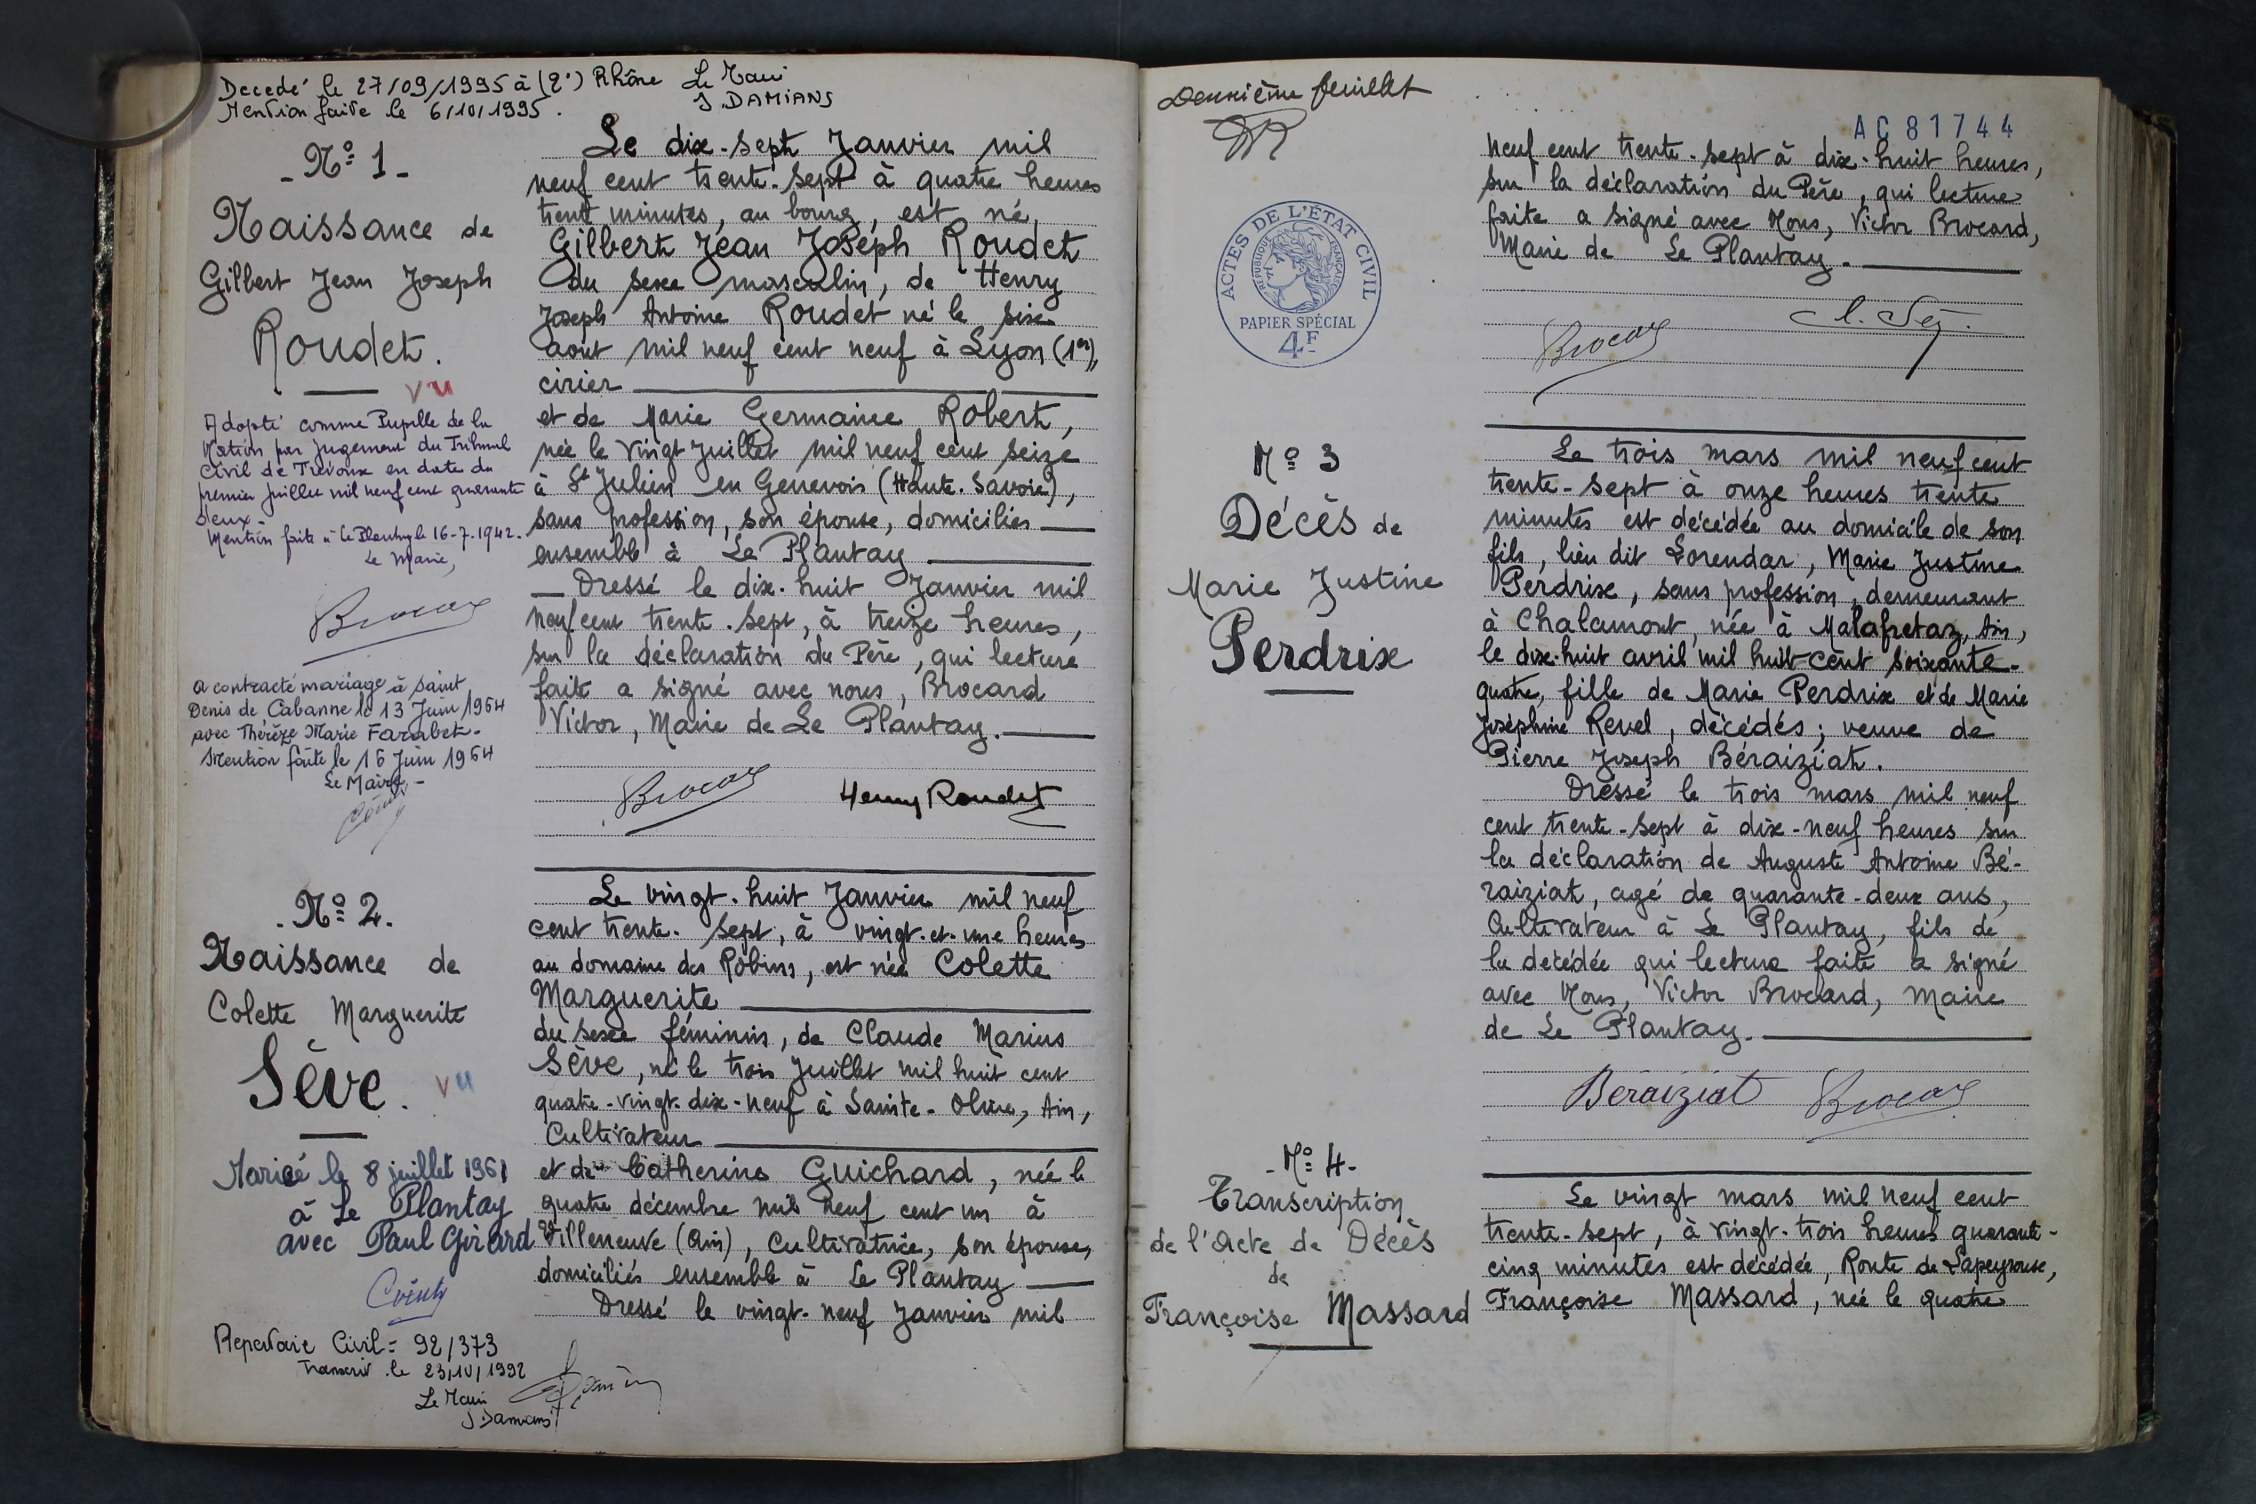 Décédé le 27/09/1995 à (2e) Rhône Le Maire
J. DAMIANS
Mention faite le 6/10/1995.
- No 1 -
Naissance de
Gilbert Jean Joseph
Roudet.
vu
Adopté comme Pupille de la
Nation par jugement du Tribunal
Civil de Trévoux en date du
premier juillet mil neuf cent quarante
deux.
Mention faite à Le Plantay le 16-7-1942.
Le Maire,
Brocard
a contracté mariage à Saint
Denis de Cabanne le 13 Juin 1964
avec Thérèze Marie Farabet.
Mention faite le 16 Juin 1964
Le Maire -
Le dix-sept Janvier mil
neuf cent trente-sept à quatre heures
trente minutes, au bourg, est né
Gilbert Jean Joseph Roudet
du sexe masculin, de Henry
Joseph Antoine Roudet né le six
août mil neuf cent neuf à Lyon (1er),
cirier
et de Marie Germaine Robert,
née le vingt Juillet mil neuf cent seize
à St Julien en Genevois (Haute-Savoie),
sans profession, son épouse, domiciliés
ensemble à Le Plantay
Dressé le dix-huit Janvier mil
neuf cent trente-sept, à treize heures,
sur la déclaration du Père, qui lecture
faite a signé avec nous, Brocard
Victor, Maire de Le Plantay.
Brocard Henry Roudet
- No 2.
Naissance de
Colette Marguerite
Sève.
vu
Mariée le 8 juillet 1961
à Le Plantay
avec Paul Girard
Répertoire Civil = 92/373
Transcrit le 23/10/1992
Le Maire
J. Damians
Le vingt-huit Janvier mil neuf
cent trente-sept, à vingt-et-une heures
au domaine des Robins, est née Colette
Marguerite
du sexe féminin, de Claude Marius
Sève, né le trois Juillet mil huit cent
quatre-vingt-dix-neuf à Sainte-Olive, Ain,
Cultivateur
et de Catherine Guichard, née le
quatre décembre mil neuf cent un à
Villeneuve (Ain), Cultivatrice, son épouse,
domiciliés ensemble à Le Plantay
Dressé le vingt-neuf Janvier mil
Deuxième feuillet
AC 81744
ACTES DE L'ÉTAT CIVIL
RÉPUBLIQUE FRANÇAISE
PAPIER SPÉCIAL
4F
neuf cent trente-sept à dix-huit heures,
sur la déclaration du Père, qui lecture
faite a signé avec Nous, Victor Brocard,
Maire de Le Plantay.
Brocard
No 3
Décès de
Marie Justine
Perdrix
Le trois mars mil neuf cent
trente-sept à onze heures trente
minutes est décédée au domicile de son
fils, lieu dit Lorendar, Marie Justine
Perdrix, sans profession, demeurant
à Chalamont, née à Malafretaz, Ain,
le dix-huit avril mil huit cent soixante-
quatre, fille de Marie Perdrix et de Marie
Joséphine Revel, décédés; veuve de
Pierre Joseph Béraiziat.
Dressé le trois mars mil neuf
cent trente-sept à dix-neuf heures sur
la déclaration de Auguste Antoine Bé-
raiziat, agé de quarante-deux ans,
Cultivateur à Le Plantay, fils de
la décédée qui lecture faite a signé
avec Nous, Victor Brocard, Maire
de Le Plantay.
Béraiziat Brocard
- No 4 -
Transcription
de l'Acte de Décès
de
Françoise Massard
Le vingt mars mil neuf cent
trente-sept, à vingt-trois heures quarante-
cinq minutes est décédée, Route de Lapeyrouse,
Françoise Massard, née le quatre